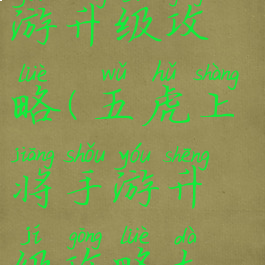 游升级攻
lüè wǔ hǔ shàng
略(五虎上
jiāng shǒu yóu shēng
将手游升
jí gōng lüè dà